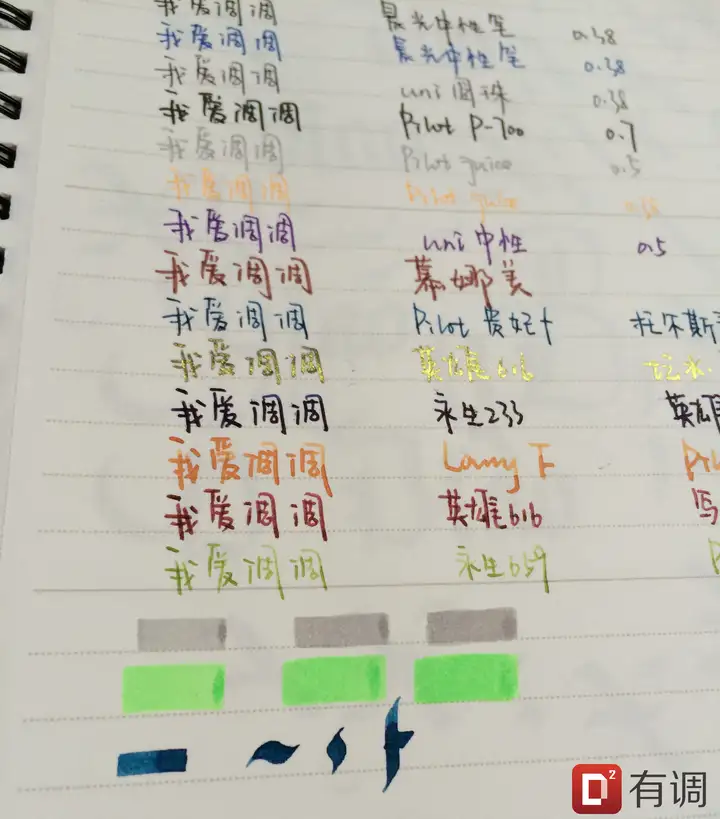 我爱调调 晨光中性笔 0.38
我爱调调 晨光中性笔 0.38
我爱调调 uni 圆珠 0.38
我爱调调 Pilot P-700 0.7
我爱调调 Pilot juice 0.5
我爱调调 Pilot juice 0.38
我爱调调 uni 中性 0.5
我爱调调 慕娜美
我爱调调 Pilot 贵妃+ 托尔斯
我爱调调 英雄616
我爱调调 永生233 英雄
我爱调调 Lamy F Pil
我爱调调 英雄616 写
我爱调调 永生659 P
D² 有调